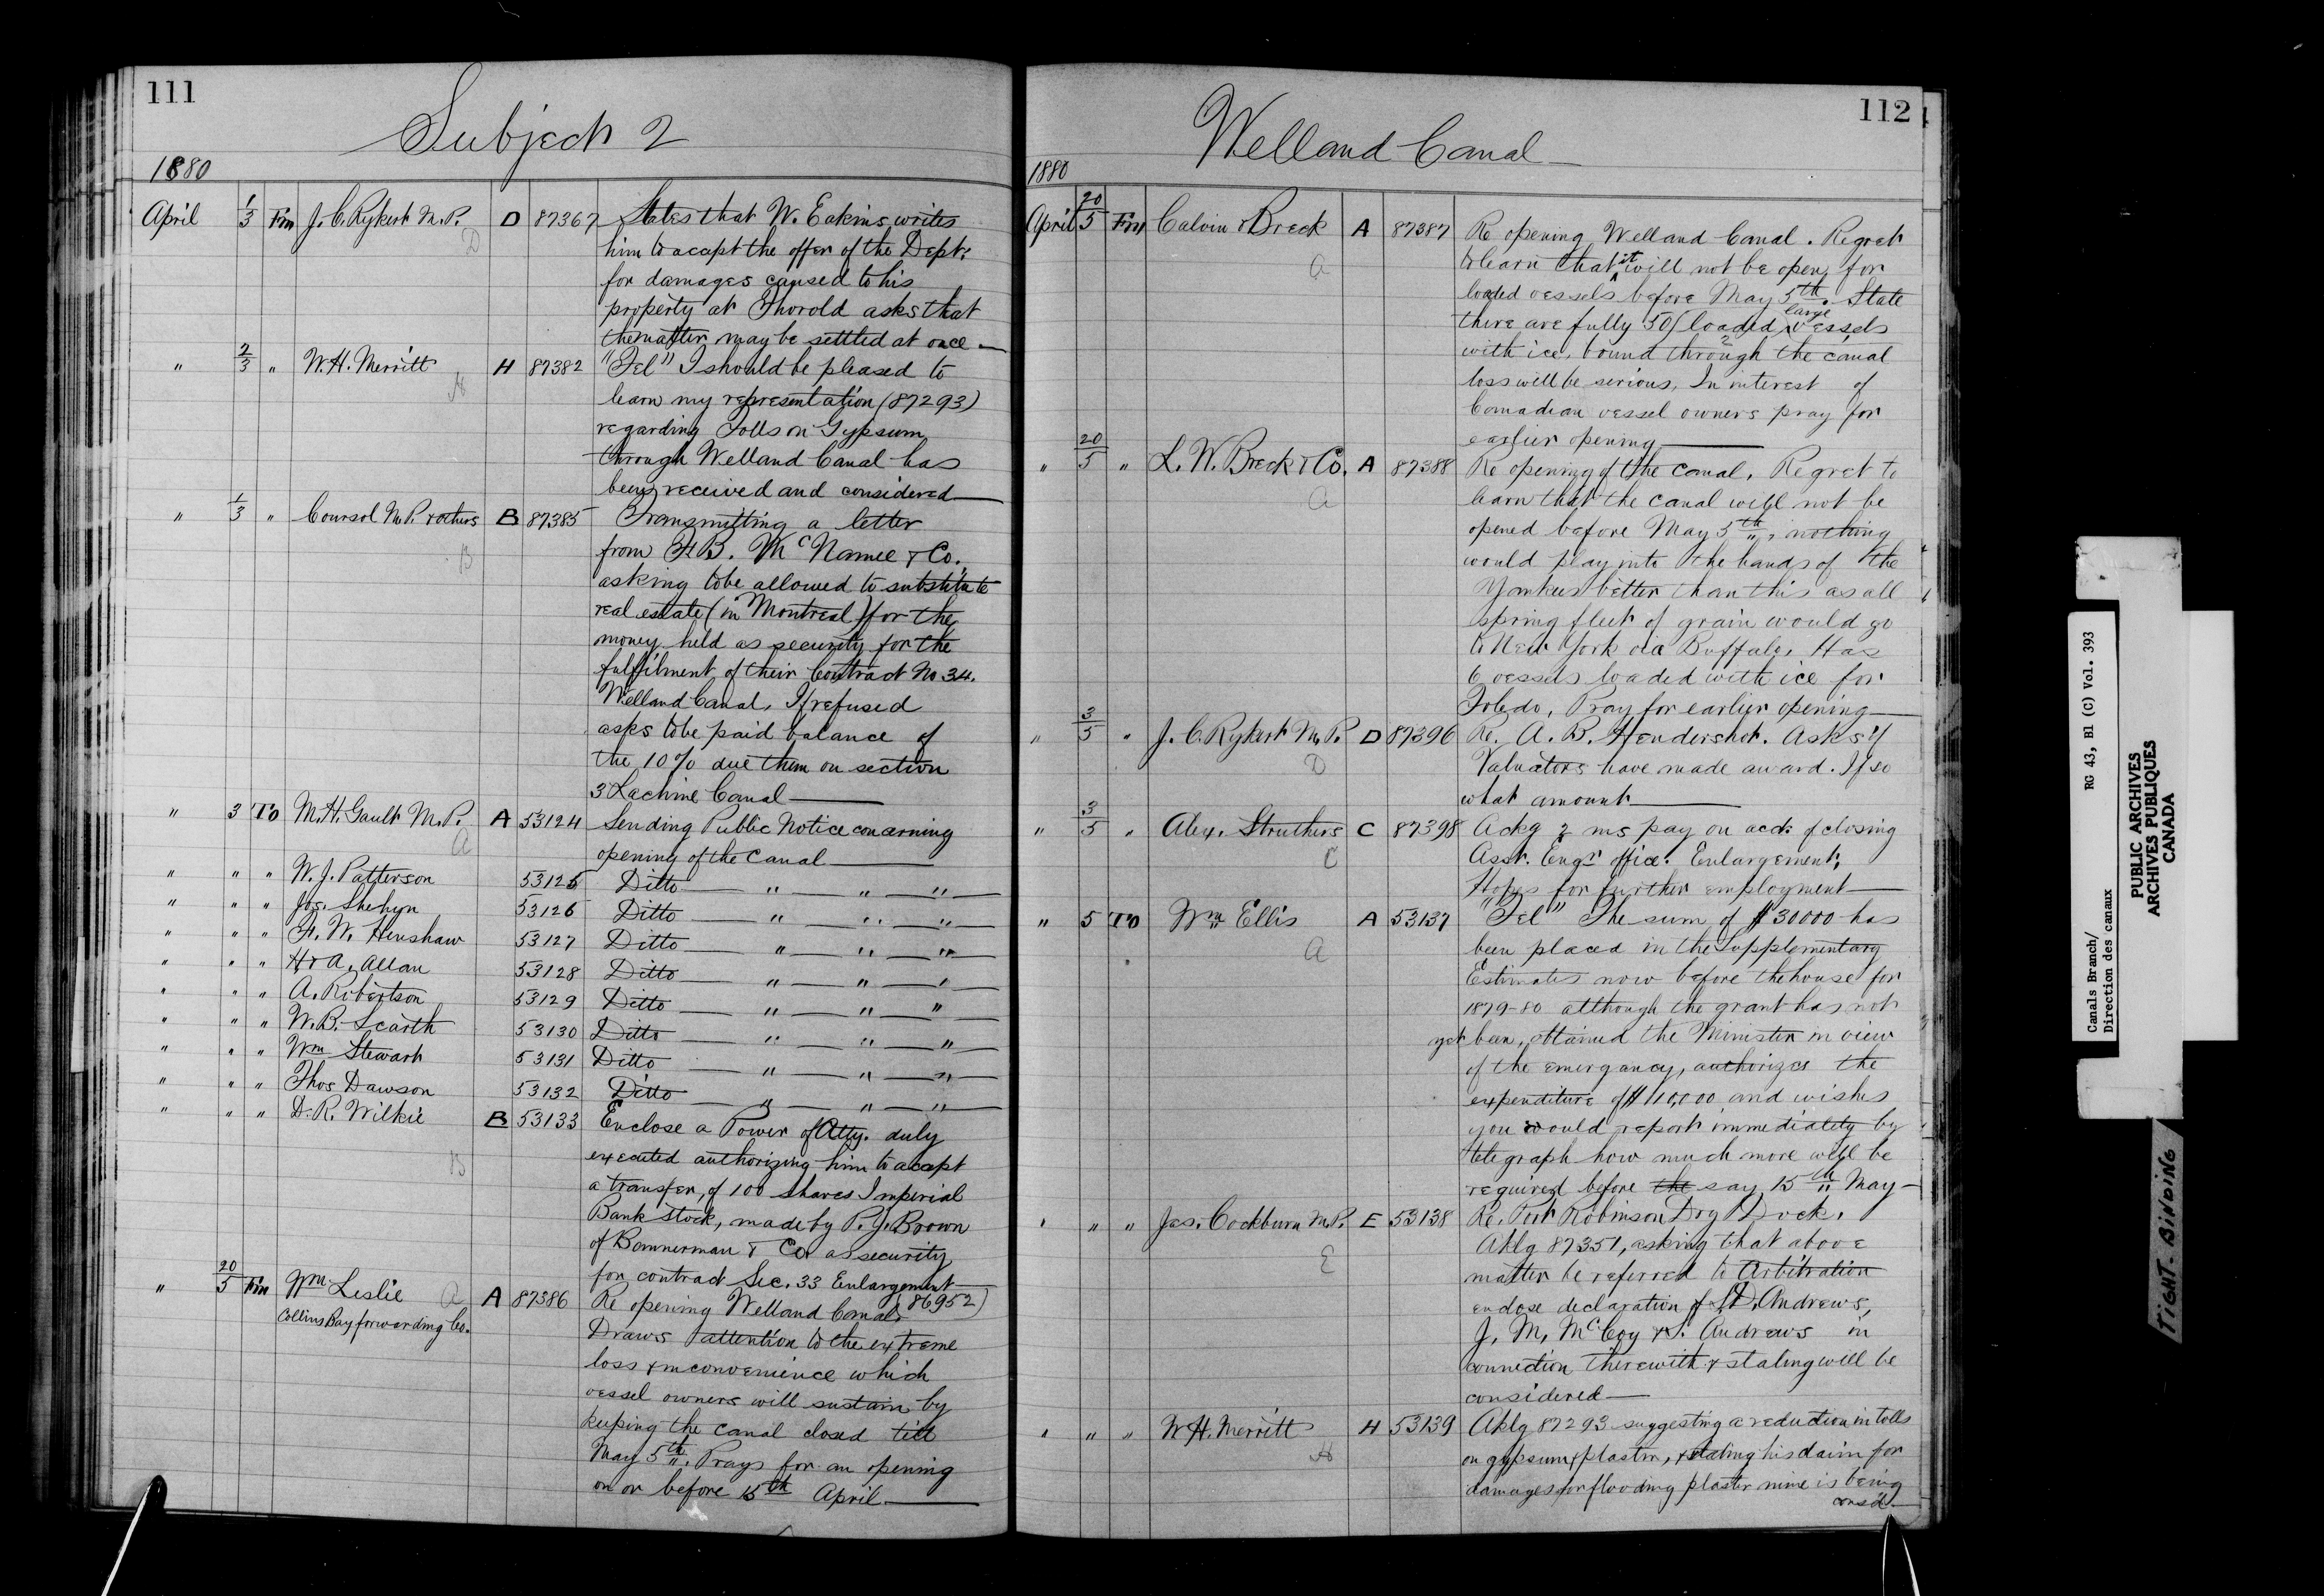 111
Subject 2
1880
April 1/3 Fm J. C. Rykert M.P. D 87367 States that W. Eakins writes
D
him to accept the offer of the Dept.
for damages caused to his
property at Thorold asks that
the matter may be settled at once —
" 2/3 " W. H. Merritt H 87382 "Tel" I should be pleased to
H
learn my representation (87293)
regarding Tolls on Gypsum
through Welland Canal has
been received and considered —
" 1/3 " Coursol M.P. & others B 87385 Transmitting a letter
B
from F. B. McNamee & Co.
asking to be allowed to substitute
real estate (in Montreal) for the
money held as security for the
fulfilment of their Contract No 34.
Welland Canal, If refused
asks to be paid balance of
the 10% due them on section
3 Lachine Canal —
" 3 To M. H. Gault M.P. A 53124 Sending Public Notice concerning
A
opening of the Canal —
" " " W. J. Patterson 53125 Ditto — " — " — " —
" " " Jos. Shehyn 53126 Ditto — " — " — " —
" " " F. W. Henshaw 53127 Ditto — " — " — " —
" " " H & A. Allan 53128 Ditto — " — " — " —
" " " A. Robertson 53129 Ditto — " — " — " —
" " " W. B. Scarth 53130 Ditto — " — " — " —
" " " Wm Stewart 53131 Ditto — " — " — " —
" " " Thos Dawson 53132 Ditto — " — " — " —
" " " D. R. Wilkie B 53133 Enclose a Power of Atty. duly
B
executed authorizing him to accept
a transfer, of 100 Shares Imperial
Bank stock, made by P. J. Brown
of Bannerman & Co. as security
for contract Sec. 33 Enlargement —
" 20/5 Fm Wm Leslie A A 87386 Re opening Welland Canal. (86952)
Collins Bay forwarding Co.
Draws attention to the extreme
loss & inconvenience which
vessel owners will sustain by
keeping the canal closed till
May 5th. Prays for an opening
on or before 15th April —
112
Welland Canal —
1880
April 20/5 Fm Calvin & Breck A 87387 Re opening Welland Canal. Regret
A
to learn that it will not be open for
loaded vessels before May 5th. State
there are fully 50 loaded large vessels
with ice, bound through the canal
loss will be serious, In interest of
Canadian vessel owners pray for
earlier opening —
" 20/5 " L. W. Breck & Co. A 87388 Re opening of the canal, Regret to
A
learn that the canal will not be
opened before May 5th, nothing
would play into the hands of the
Yankees better than this as all
spring fleet of grain would go
to New York via Buffalo, Has
6 vessels loaded with ice for
Toledo, Pray for earlier opening —
" 3/5 " J. C. Rykert M.P. D 87396 Re. A. B. Hendershot. Asks if
D
Valuators have made award. If so
what amount —
" 3/5 " Alex. Struthers C 87398 Ackg 2 ms pay on acct. of closing
C
Asst. Engr office. Enlargement,
Hopes for further employment —
" 5 To Wm Ellis A 53137 "Tel" The sum of $30000 has
A
been placed in the Supplementary
Estimates now before the house for
1879-80 although the grant has not
yet been, obtained the Minister in view
of the emergancy, authorizes the
expenditure of $110,000 and wishes
you would report immediately by
telegraph how much more will be
required before the say 15th May —
" " " Jas. Cockburn M.P. E 53138 Re. Port Robinson Dry Dock.
E
Aklg 87351, asking that above
matter be referred to Arbitration
enclose declaration of D. Andrews,
J. M. McCoy & S. Andrews in
connection therewith & stating will be
considered —
" " " W. H. Merritt H 53139 Aklg 87293 suggesting a reduction in tolls
H
on gypsum & plaster, & stating his claim for
damages for flooding plaster mine is being
consd —
Canals Branch/ RG 43, B1 (C) Vol. 393
Direction des canaux
PUBLIC ARCHIVES
ARCHIVES PUBLIQUES
CANADA
TIGHT BINDING